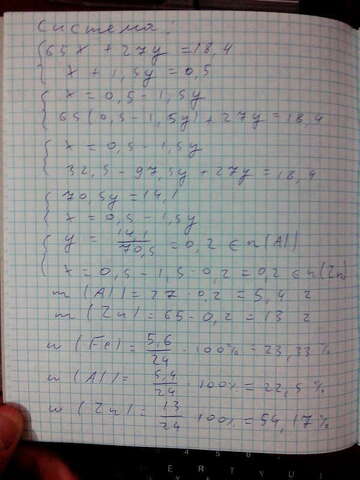 система:
65x + 27y = 18,4
x + 1,5y = 0,5
x = 0,5 - 1,5y
65(0,5 - 1,5y) + 27y = 18,4
x = 0,5 - 1,5y
32,5 - 97,5y + 27y = 18,4
70,5y = 14,1
x = 0,5 - 1,5y
y = 14,1/70,5 = 0,2 ∈ n(Al)
x = 0,5 - 1,5·0,2 = 0,2 ∈ n(Zn)
m(Al) = 27·0,2 = 5,4 г
m(Zn) = 65·0,2 = 13 г
w(Fe) = 5,6/24 · 100% = 23,33%
w(Al) = 5,4/24 · 100% = 22,5%
w(Zn) = 13/24 · 100% = 54,17%
E R T Y U